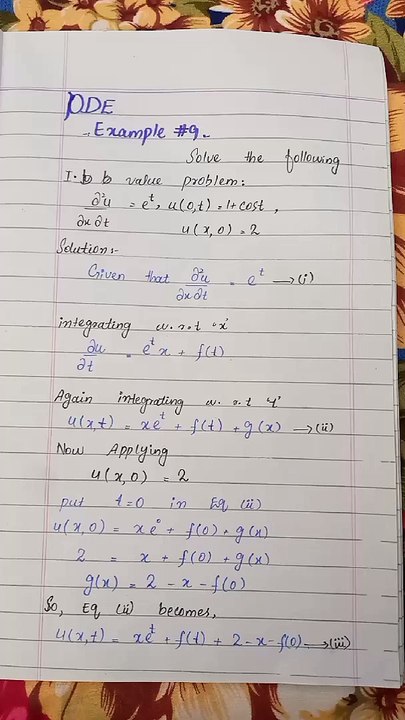 PDE
Example #9.
Solve the following
I. b b value problem:
∂²u/∂x∂t = eᵗ, u(0,t) = 1+cost,
u(x,0) = 2
Solution:-
Given that ∂²u/∂x∂t = eᵗ →(i)
integrating w.r.t 'x'
∂u/∂t = eᵗx + f(t)
Again integrating w.r.t 't'
u(x,t) = xeᵗ + f(t) + g(x) →(ii)
Now Applying
u(x,0) = 2
put t=0 in Eq (ii)
u(x,0) = xe⁰ + f(0) + g(x)
2 = x + f(0) + g(x)
g(x) = 2 - x - f(0)
So, Eq (ii) becomes,
u(x,t) = xeᵗ + f(t) + 2 - x - f(0) →(iii)